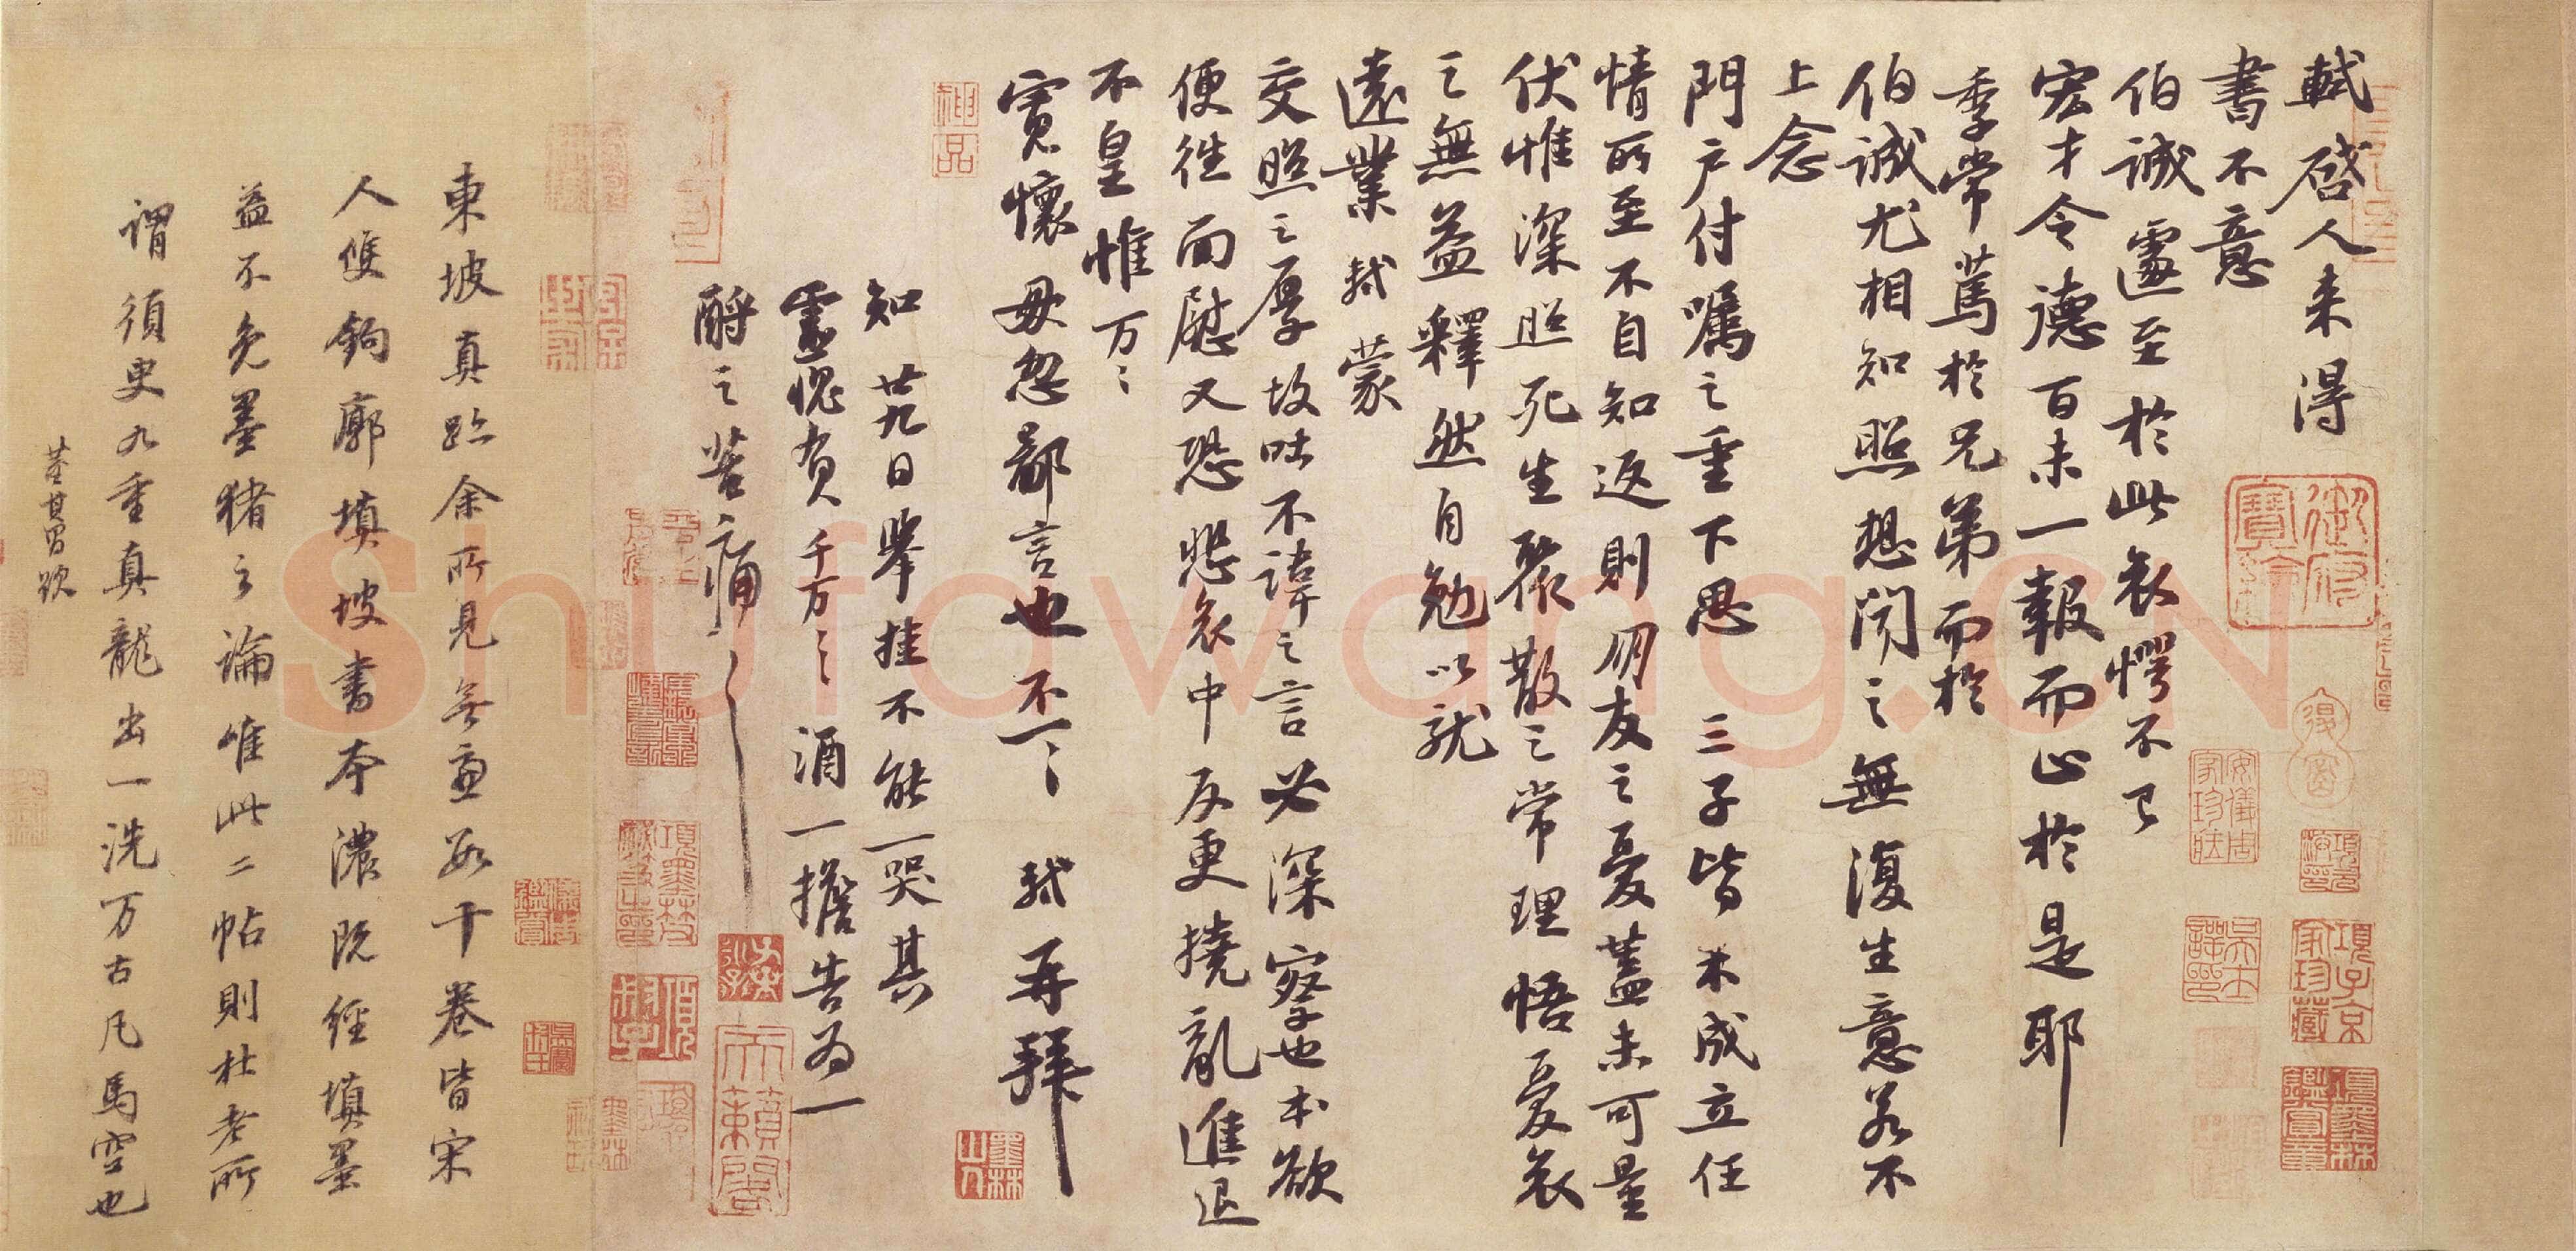 軾啓人来得
書不意
伯誠遽至於此哀愕不已
宏才令德百未一報而止於是耶
季常篤於兄弟而於
伯誠尤相知照想聞之無復生意若不
上念
門户付嘱之重下思三子皆未成立任
情所至不自知返則朋友之憂蓋未可量
伏惟深照死生聚散之常理悟憂哀
之無益釋然自勉以就
遠業軾蒙
交照之厚故吐不諱之言必深察也本欲
便往面慰又恐悲哀中反更撓亂進退
不皇惟万万
寛懷毋忽鄙言也不一一軾再拜
知廿九日舉挂不能一哭其
靈愧負千万千万酒一擔告為一
酹之苦痛苦痛
東坡真跡余所見無慮數十卷皆宋
人雙鉤廓填坡書本濃既經填墨
益不免墨猪之論唯此二帖則杜老所
謂須臾九重真龍出一洗万古凡馬空也
董其昌跋
神品
御府寶繪
安儀周家珍藏
項子京家珍藏
項墨林鑑賞章
墨林山人
天籟閣
項墨林父秘笈之印
Shufawang.CN